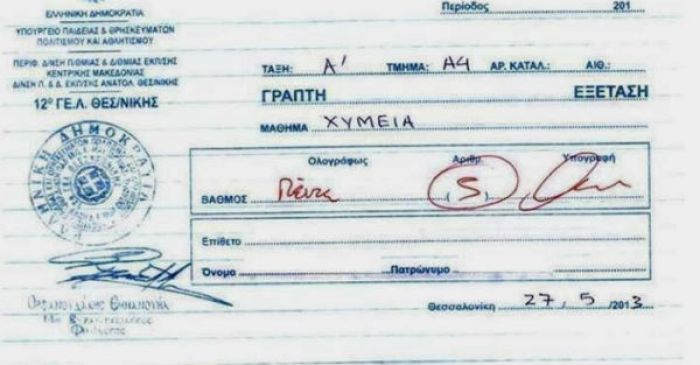 ΕΛΛΗΝΙΚΗ ΔΗΜΟΚΡΑΤΙΑ
ΥΠΟΥΡΓΕΙΟ ΠΑΙΔΕΙΑΣ & ΘΡΗΣΚΕΥΜΑΤΩΝ
ΠΟΛΙΤΙΣΜΟΥ ΚΑΙ ΑΘΛΗΤΙΣΜΟΥ
ΠΕΡΙΦ. Δ/ΝΣΗ Π/ΘΜΙΑΣ & Δ/ΘΜΙΑΣ ΕΚΠ/ΣΗΣ
ΚΕΝΤΡΙΚΗΣ ΜΑΚΕΔΟΝΙΑΣ
Δ/ΝΣΗ Π. & Δ. ΕΚΠ/ΣΗΣ ΑΝΑΤΟΛ. ΘΕΣ/ΝΙΚΗΣ
12ο ΓΕ.Λ. ΘΕΣ/ΝΙΚΗΣ
ΕΛΛΗΝΙΚΗ ΔΗΜΟΚΡΑΤΙΑ
Περίοδος 201
ΤΑΞΗ: Α' ΤΜΗΜΑ: Α4 ΑΡ. ΚΑΤΑΛ.: ΑΙΘ.:
ΓΡΑΠΤΗ ΕΞΕΤΑΣΗ
ΜΑΘΗΜΑ ΧΥΜΕΙΑ
Ολογράφως Αριθμ. Υπογραφή
ΒΑΘΜΟΣ Πέντε (5)
Επίθετο
Όνομα Πατρώνυμο
Θεσσαλονίκη 27, 5 /2013